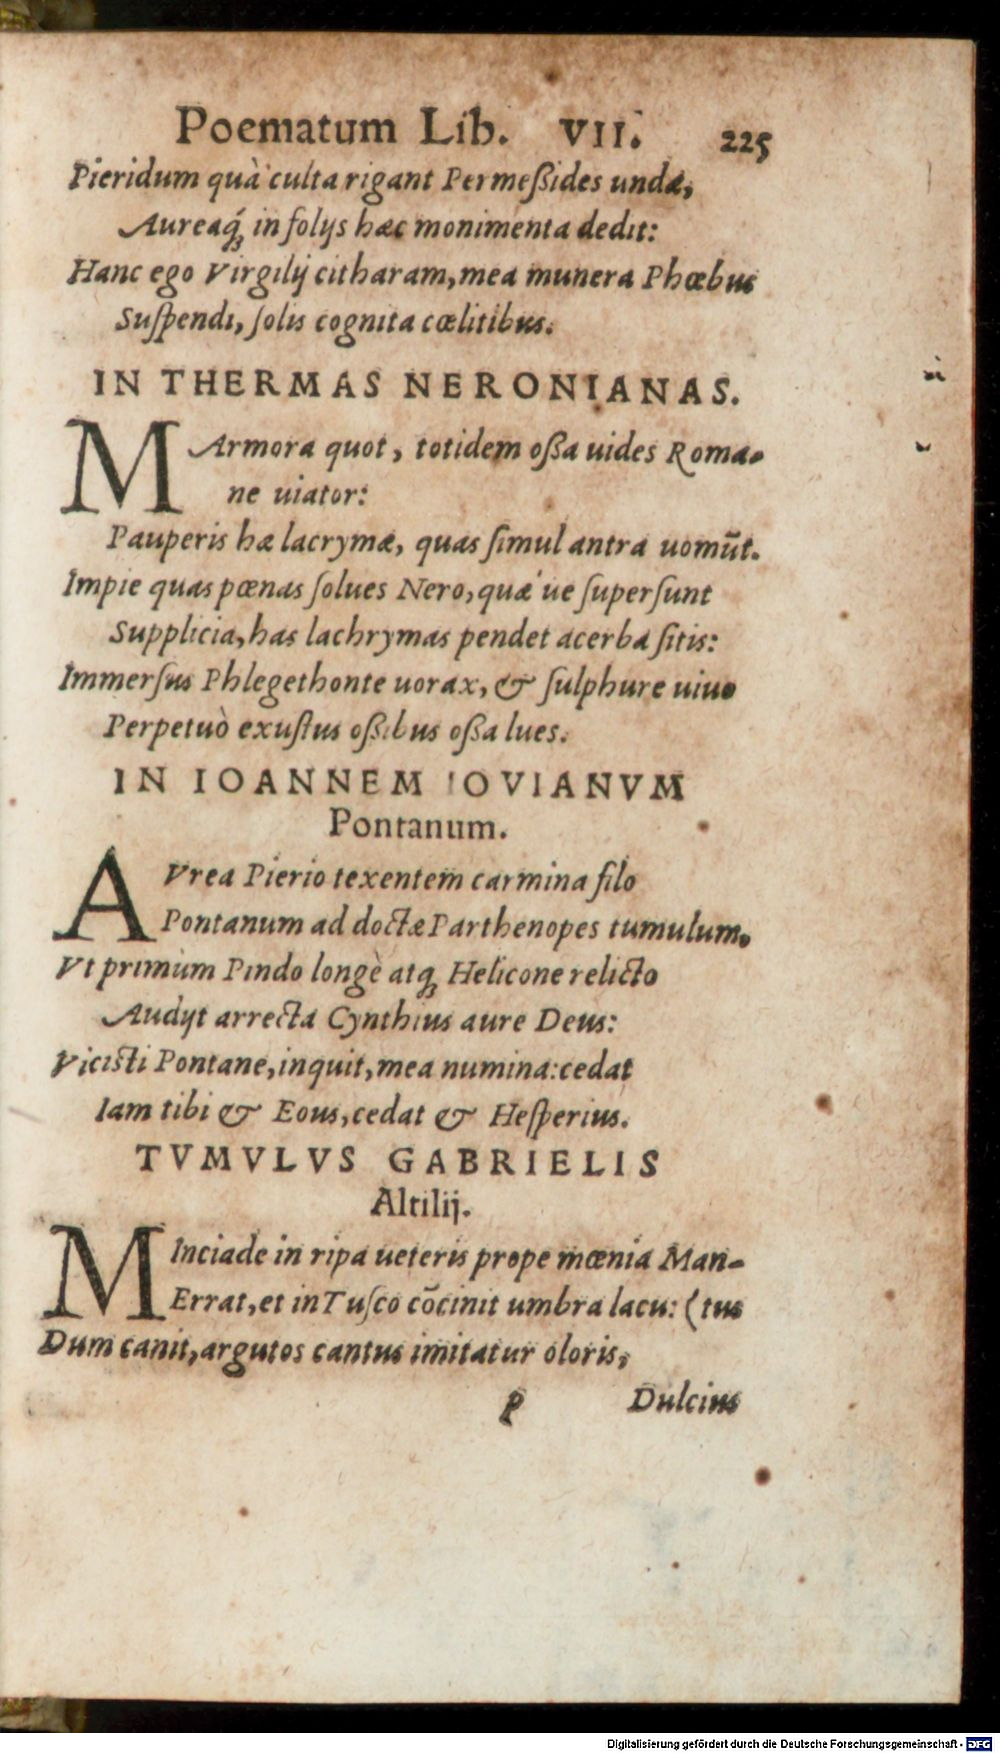 Poematum Lib. VII. 225
Pieridum quà culta rigant Permeßides undæ,
Aureaq́; in folijs hæc monimenta dedit:
Hanc ego Virgilij citharam, mea munera Phœbus
Suſpendi, ſolis cognita cœlitibus.
IN THERMAS NERONIANAS.
MArmora quot, totidem oßa uides Roma-
ne uiator:
Pauperis hæ lacrymæ, quas ſimul antra uomũt.
Impie quas pœnas ſolues Nero, quæ ue ſuperſunt
Supplicia, has lachrymas pendet acerba ſitis:
Immerſus Phlegethonte uorax, & ſulphure uiuo
Perpetuò exuſtus oßibus oßa lues.
IN IOANNEM IOVIANVM
Pontanum.
AVrea Pierio texentem carmina filo
Pontanum ad doctæ Parthenopes tumulum,
Vt primùm Pindo longè atq; Helicone relicto
Audijt arrecta Cynthius aure Deus:
Vicisti Pontane, inquit, mea numina: cedat
Iam tibi & Eous, cedat & Heſperius.
TVMVLVS GABRIELIS
Altilij.
MInciade in ripa ueteris prope mœnia Man-
Errat, et in Tuſco cõcinit umbra lacu: (tus
Dum canit, argutos cantus imitatur oloris,
P Dulcius
Digitalisierung gefördert durch die Deutsche Forschungsgemeinschaft - DFG